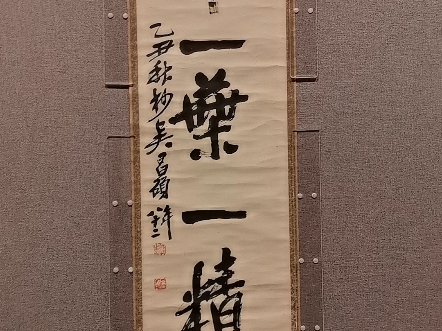 一葉一精
乙丑秋杪吳昌碩年